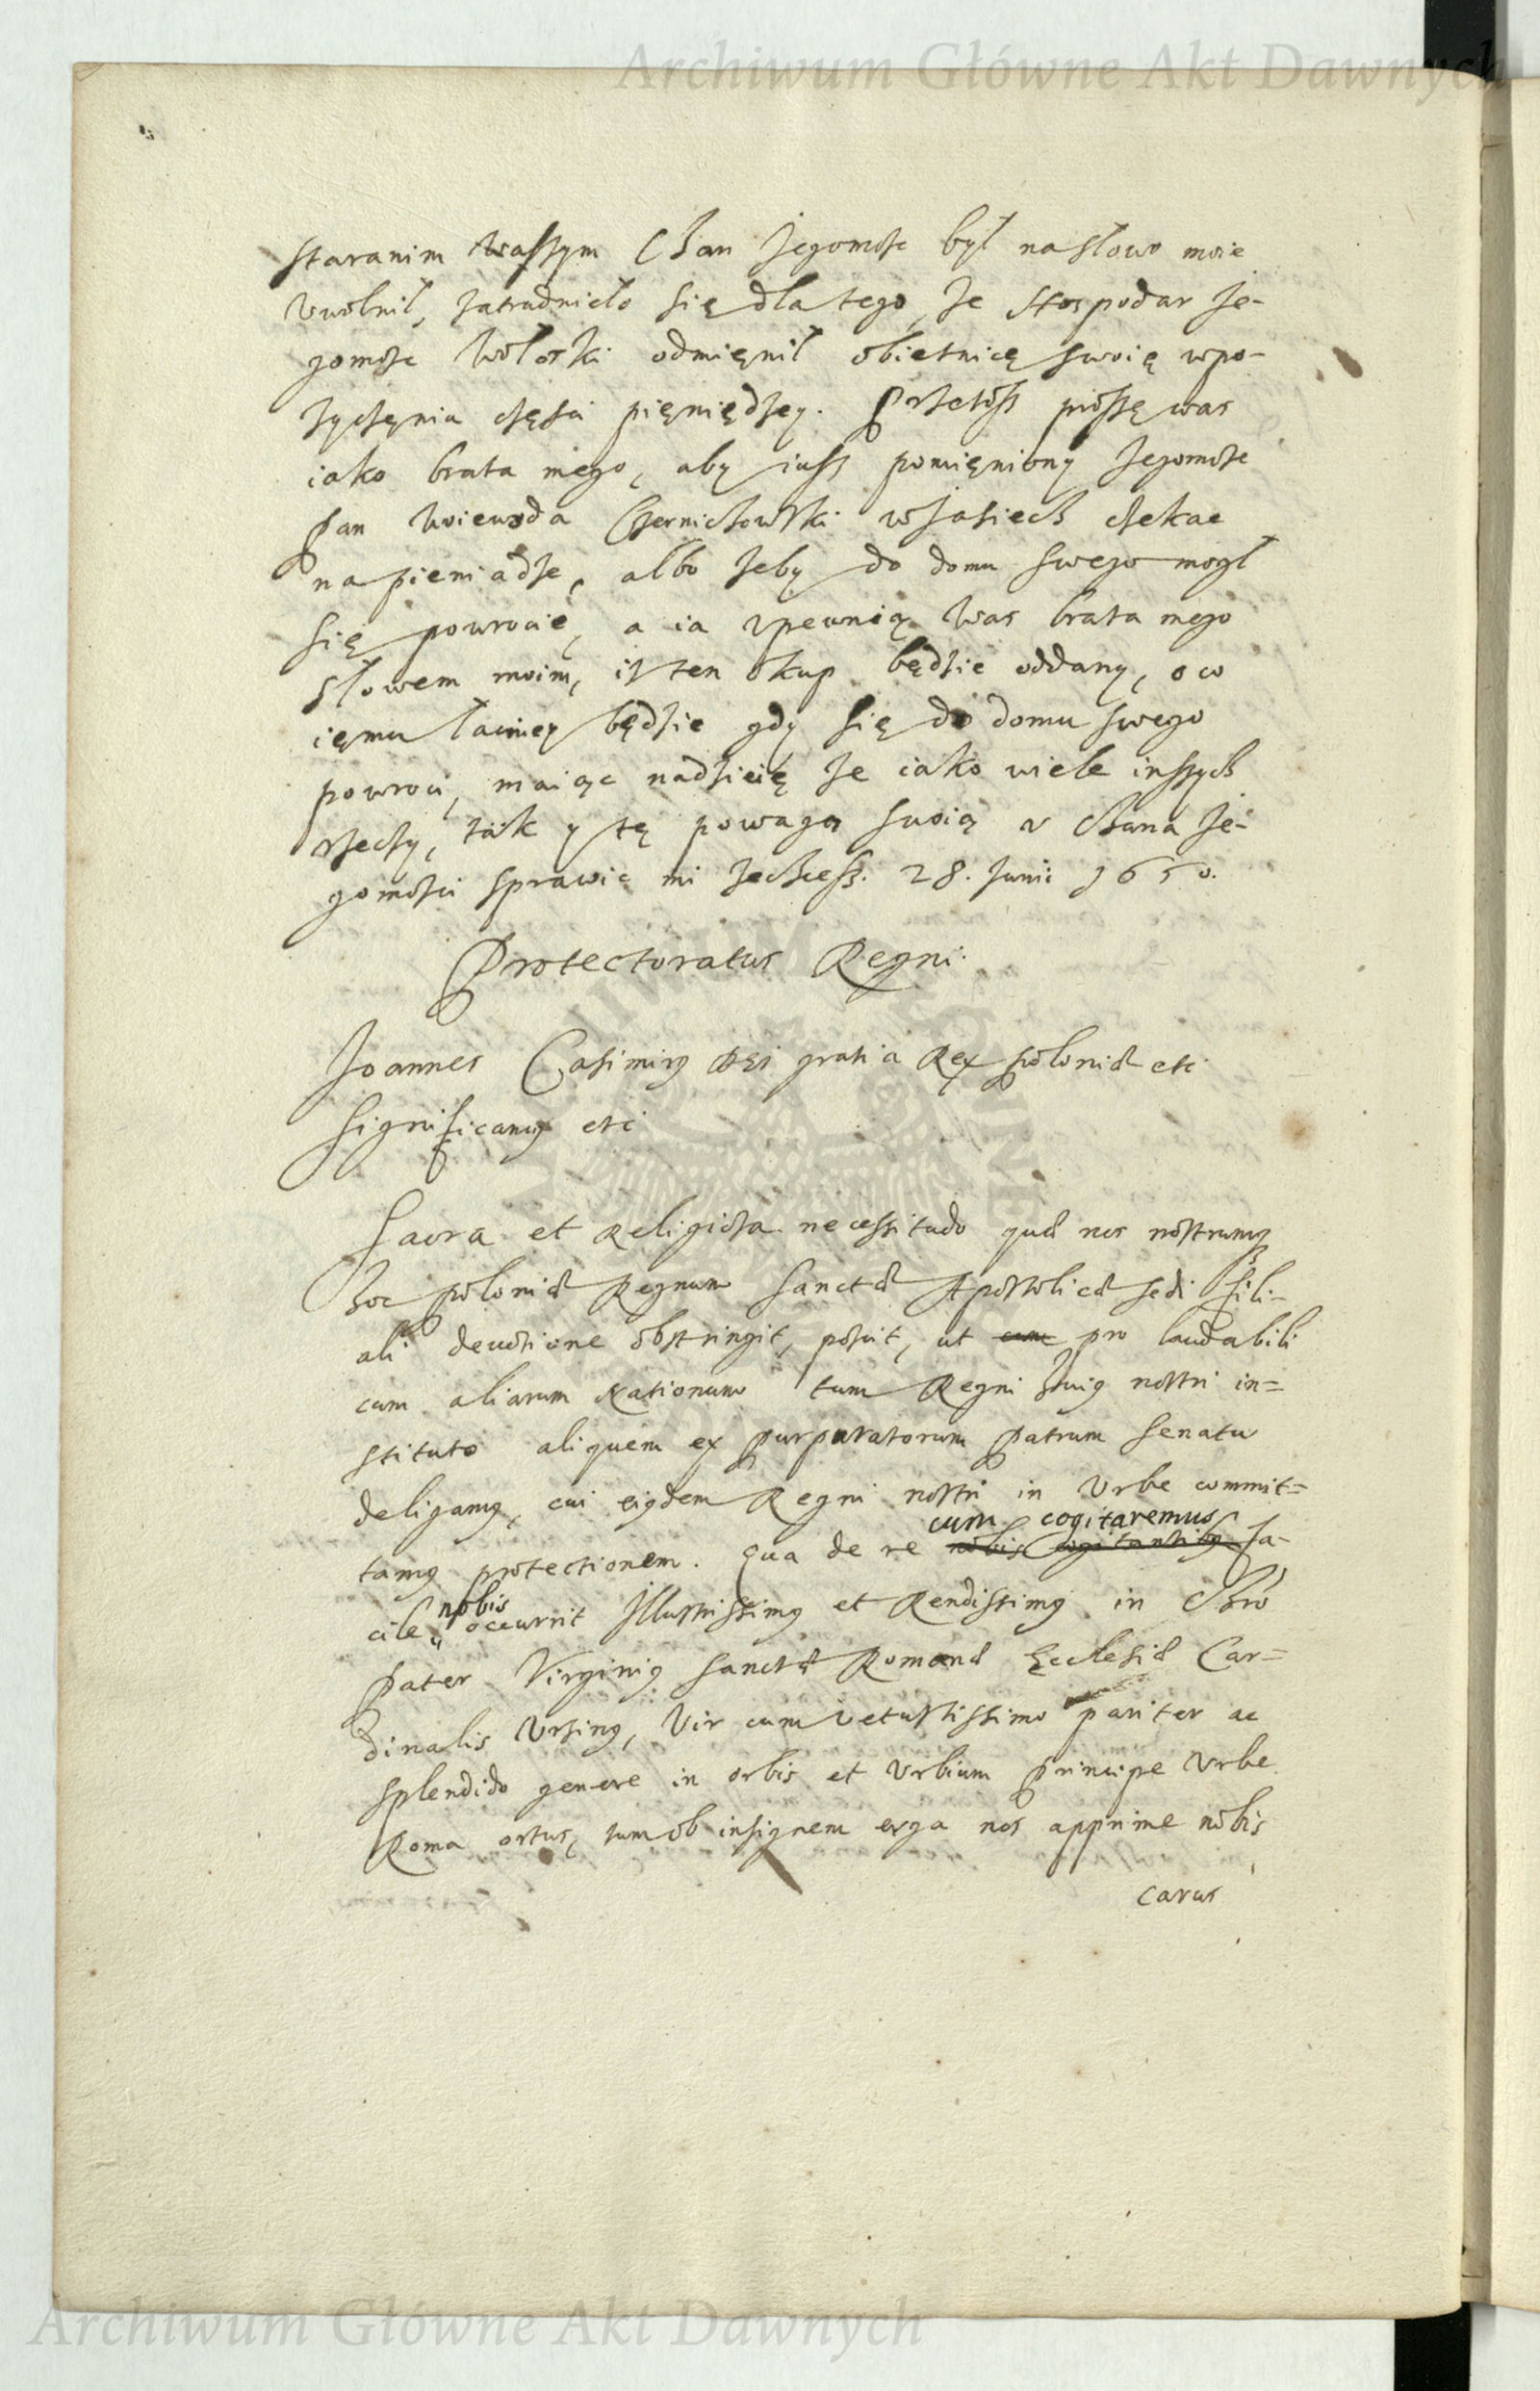 Archiwum Główne Akt Dawnych
staranim waszym Chan Jegomosc był na słowo moie
vwolnił, zatrudnieło się dla tego, że Hospodar Je-
gomosc Wołoski odmięnił obietnicę swoię w po-
życzęnia częsci pięniędzey. Przetosz proszę was
iako brata mego, aby iusz pomięniony Jegomosc
Pan Woiewoda Czernichowski w Jasiech czekac
na pieniadze, albo żeby do domu swego mogł
się powrocić, a ia vpewnią Was brata mego
słowem moim, iż ten okup będzie oddany, o co
ięmu łacniey będzie gdy się do domu swego
powroci, maiąc nadzieię że iako wiele inszych
rzeczy, tak y tę powagą swoią v Chana Je-
gomosci sprawic mi zechcesz. 28. Junii 1650.
Protectoratus Regni.
Joannes Casimirq DEI gratia Rex Poloniæ etc
Significamq etc
Sacra et Religiosa necessitudo quæ nos nostrumq
hoc Poloniæ Regnum Sanctæ Apostolicæ Sedi fili-
ali deuotione obstringit, poscit, ut cum pro laudabili
cum aliarum Nationum tum Regni huiq nostri in=
stituto aliquem ex purpuratorum Patrum Senatu
deligamq, cui eiqdem Regni nostri in Vrbe commit=
cum cogitaremus
tamq protectionem. Qua de re nobis cogitantibq fa-
nobis
cile occurrit Illustrissimq et Rendissimq in Chro
Pater Virginiq Sanctæ Romanæ Ecclesiæ Car=
dinalis Vrsinq, Vir cum vetustissimo pariter ac
splendido genere in orbis et Vrbium Principe Vrbe
Roma ortus, tum ob insignem erga nos apprime nobis
carus
Archiwum Główne Akt Dawnych